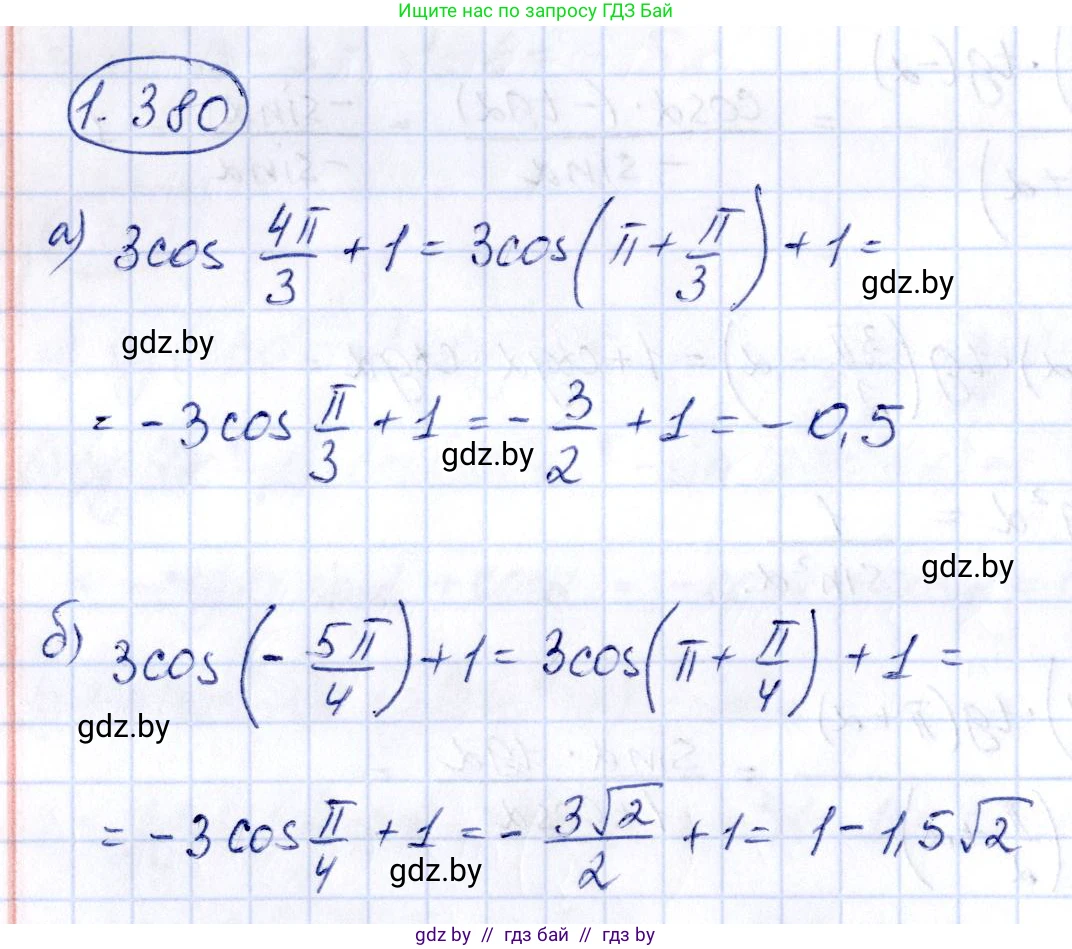 Ищите нас по запросу ГДЗ Бай
1.380
а) 3cos 4π/3 + 1 = 3cos(π + π/3) + 1 =
gdz.by
gdz.by
= -3cos π/3 + 1 = - 3/2 + 1 = -0,5
gdz.by
gdz.by
б) 3cos(- 5π/4) + 1 = 3cos(π + π/4) + 1 =
gdz.by
= -3cos π/4 + 1 = - 3√2/2 + 1 = 1 - 1,5√2
gdz.by
gdz.by // гдз бай // gdz.by